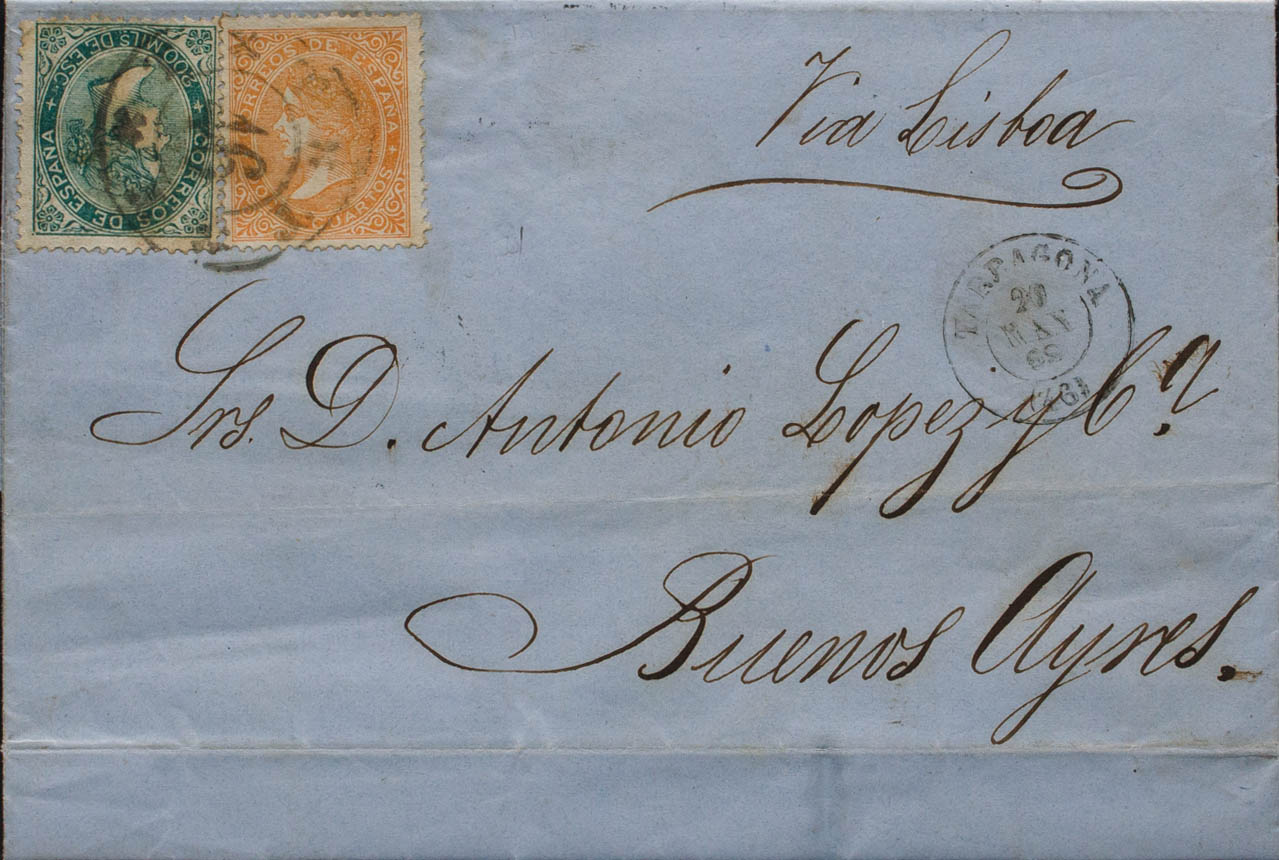 Via Lisboa
CORREOS DE ESPAÑA
200 MILS DE ESCO
CORREOS DE ESPAÑA
CUARTOS
TARRAGONA
20
MAY
(26)
Srs. D. Antonio Lopez y Cª.
Buenos Ayres.